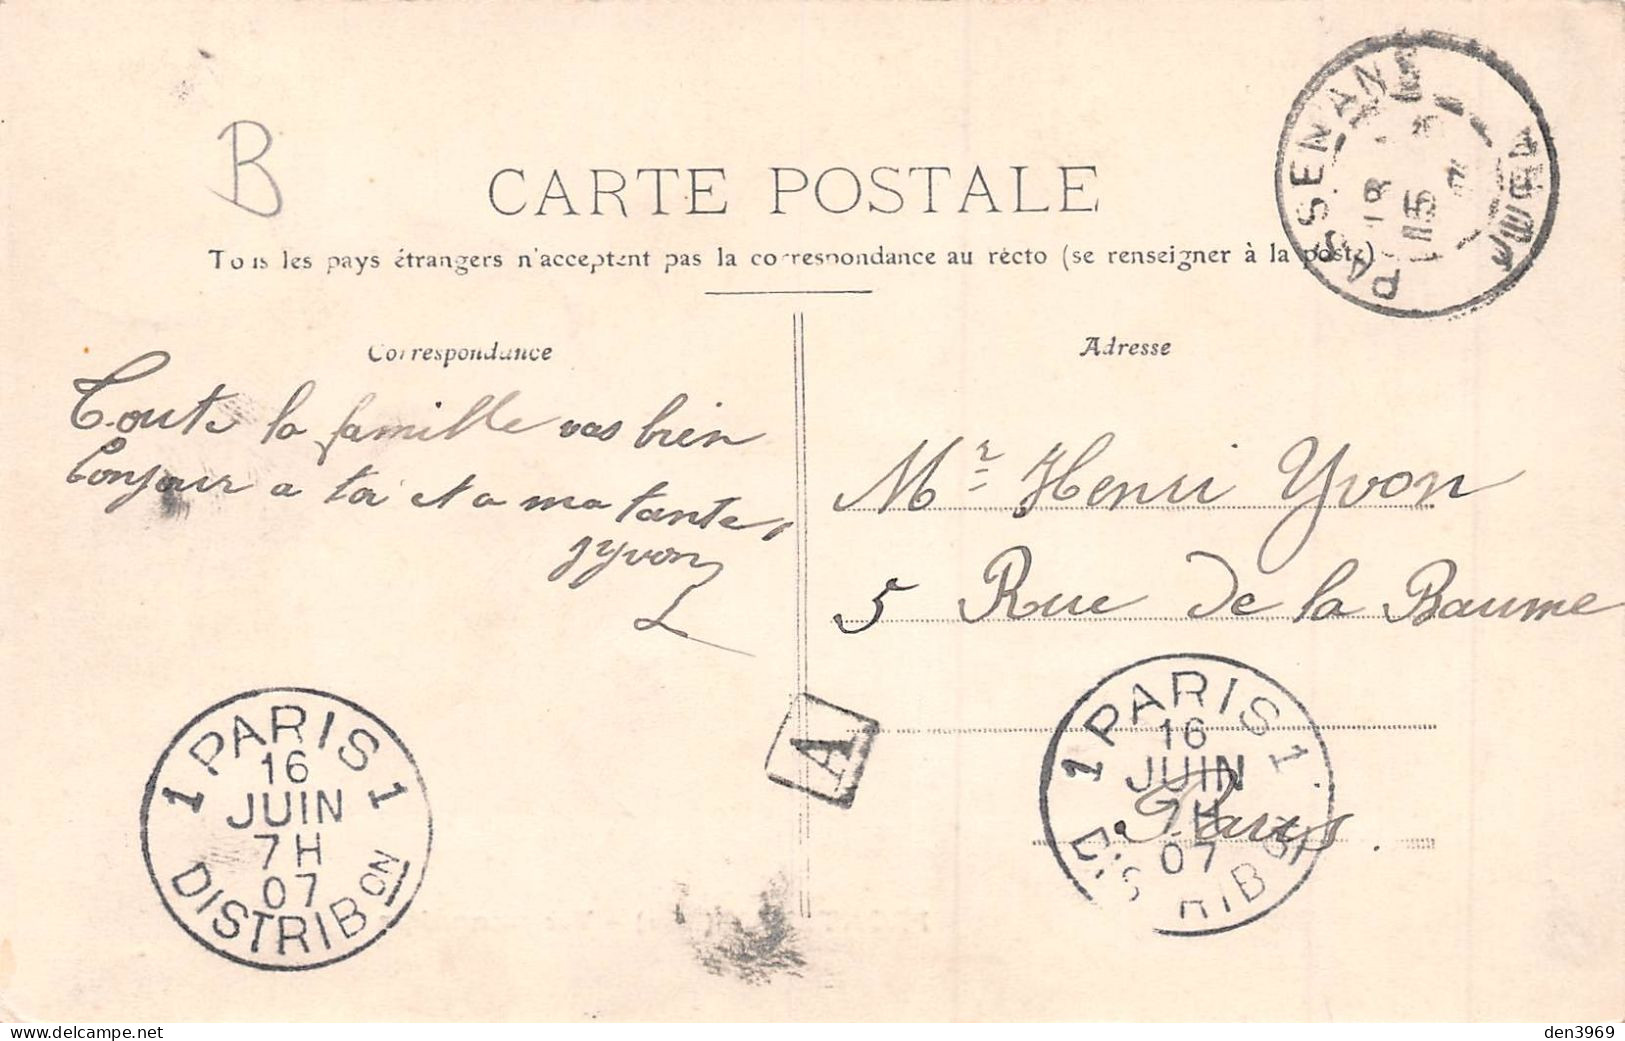 B
CARTE POSTALE
Tous les pays étrangers n'acceptent pas la correspondance au recto (se renseigner à la poste)
PASSENANS
Correspondance
Toute la famille vas bien
Bonjour a toi et a ma tante,
J Yvon
Adresse
Mr Henri Yvon
5 Rue de la Baume
Paris.
A
1 PARIS 1
16
JUIN
7H
07
DISTRIBON
1 PARIS 1
16
JUIN
7H
07
DISTRIBON
den3969